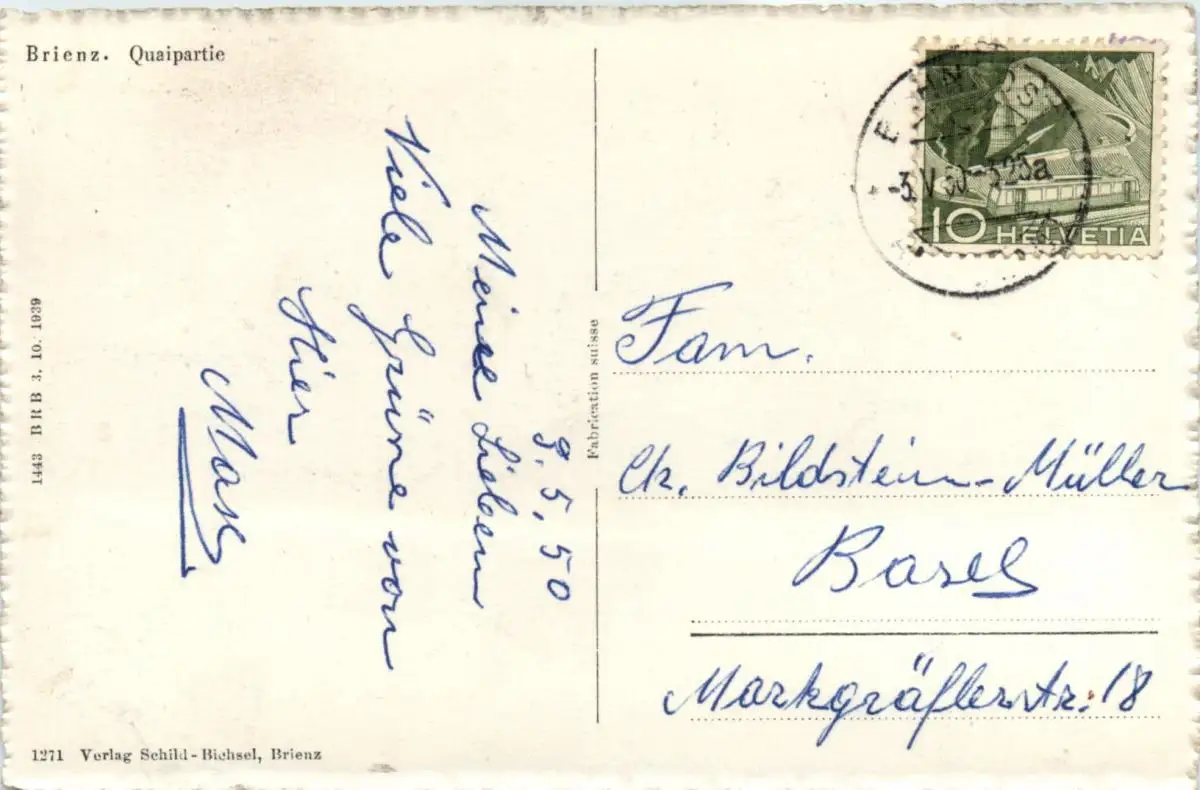 Brienz. Quaipartie
1443 BRB 3. 10. 1939
9. 5. 50
Meine Lieben
Viele Grüsse von
Hier
Max
1271 Verlag Schild-Bichsel, Brienz
Fabrication suisse
-3.V.50-3
10 HELVETIA
Fam.
Ck. Bildstein-Müller
Basel
Markgräflerstr. 18